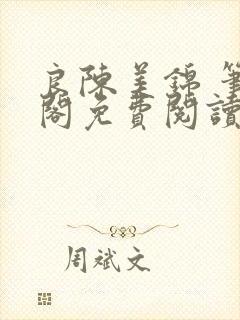 良陳美錦 筆
閣免費閱讀
周斌文